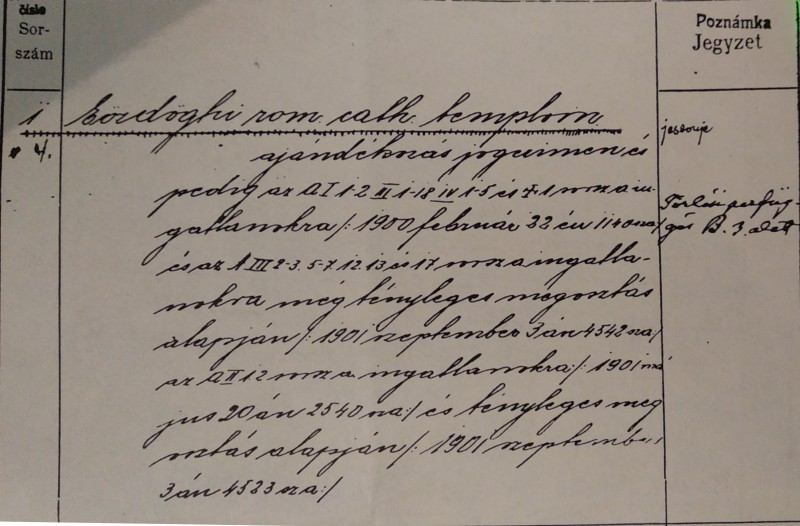 číslo
Sor-
szám
Poznámka
Jegyzet
1 Eördöghi rom. cath. templom
4.
ajándékozás jogcimen és
pedig az A I 1-2 III 1-18 IV 1-5 és 7-1 sorsz a in-
gatlanokra /: 1900 február 22 én 1140 sz:/
és az A III 2-3. 5-7. 12. 13 és 17 sorsz a ingatla-
nokra még tényleges megosztás
alapján /: 1901 szeptember 3án 4542 sz:/
az A II 1 2 sorsz a. ingatlanokra /: 1901 má
jus 20án 2540 sz:/ és tényleges meg
osztás alapján /: 1901 szeptember
3án 4523 sz:/
Törlési perfüg-
gés B. 3. alatt